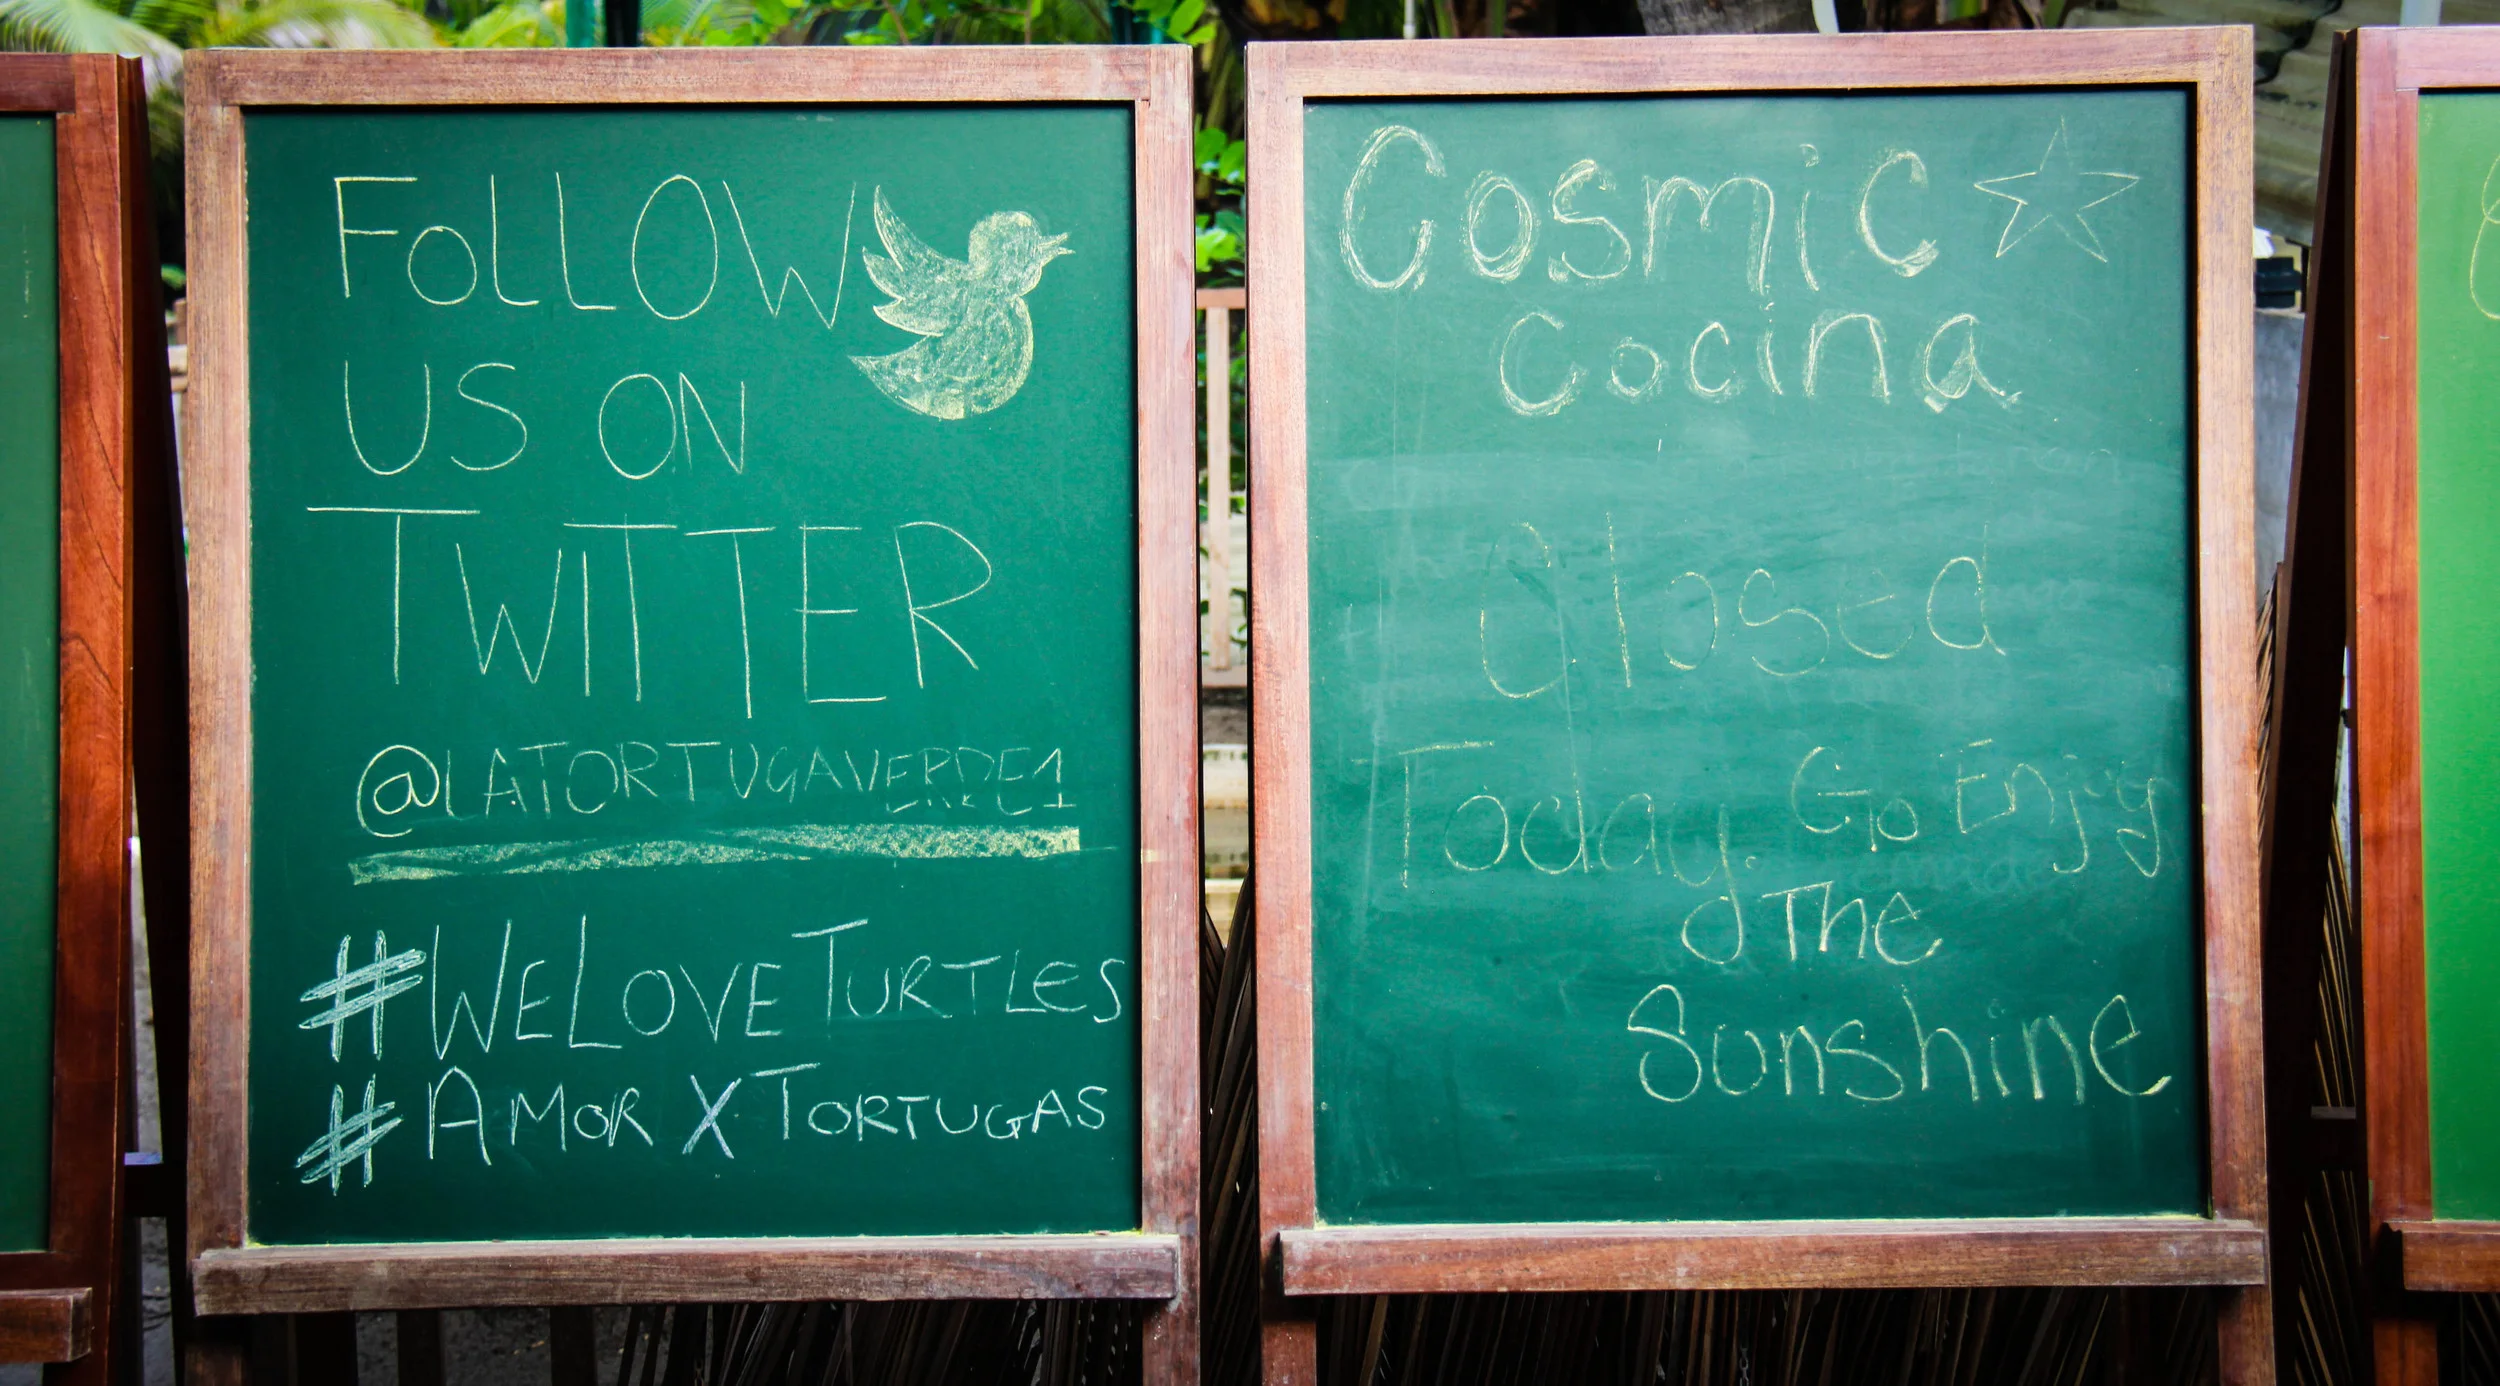 FOLLOW
US ON
TWITTER
@LATORTUGAVERDE1
#WELOVETURTLES
#AMORXTORTUGAS
Cosmic
Cocina
Closed
Today. Go Enjoy
The
Sunshine